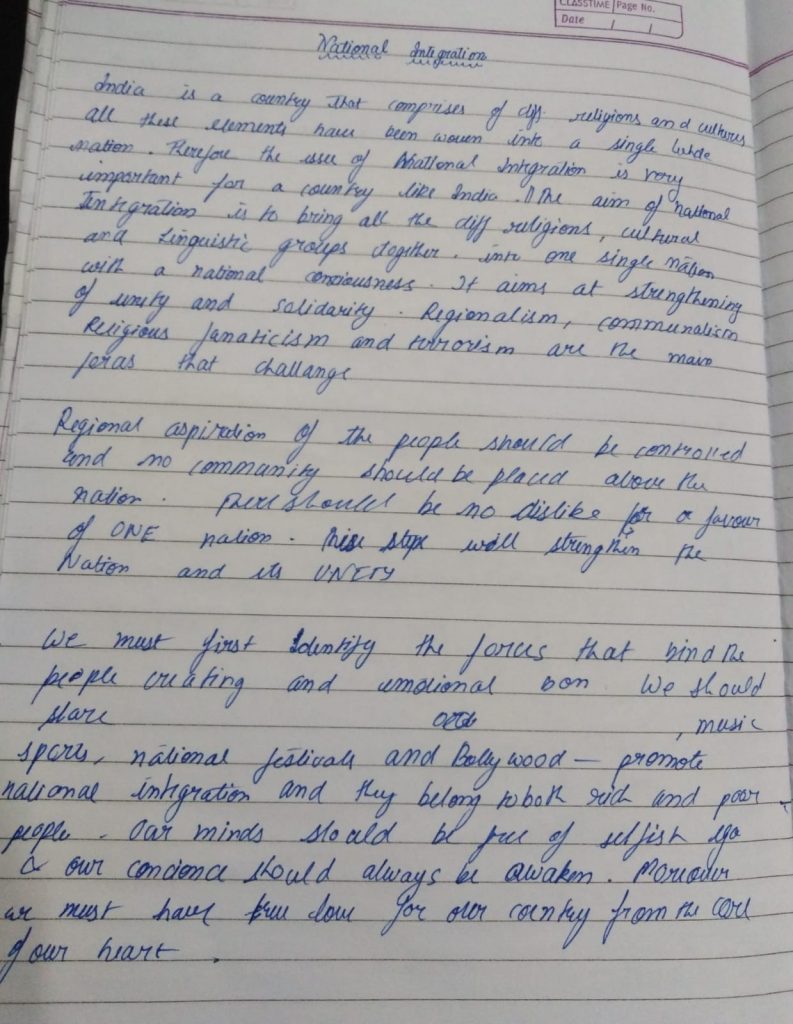 CLASSTIME Page No.
Date / /
National Integration
India is a country that comprises of diff religions and cultures
all these elements have been woven into a single whole
nation. Therefore the issue of National Integration is very
important for a country like India. The aim of national
Integration is to bring all the diff religions, cultural
and Linguistic groups together. into one single nation
with a national consciousness. It aims at strengthening
of unity and solidarity. Regionalism, communalism
Religious fanaticism and terrorism are the main
foras that challange
Regional aspiration of the people should be controlled
and no community should be placed above the
nation. There should be no dislike for a favour
of ONE nation. These steps will strengthen the
Nation and its UNETY
We must first Identify the forces that bind the
people creating and emotional bon We should
share , music
sports, national festivals and Bollywood — promote
national integration and they belong to both rich and poor
people. Our minds should be free of selfish ego
& our concience should always be awaken. Moreover
we must have true love for our country from the core
of our heart.